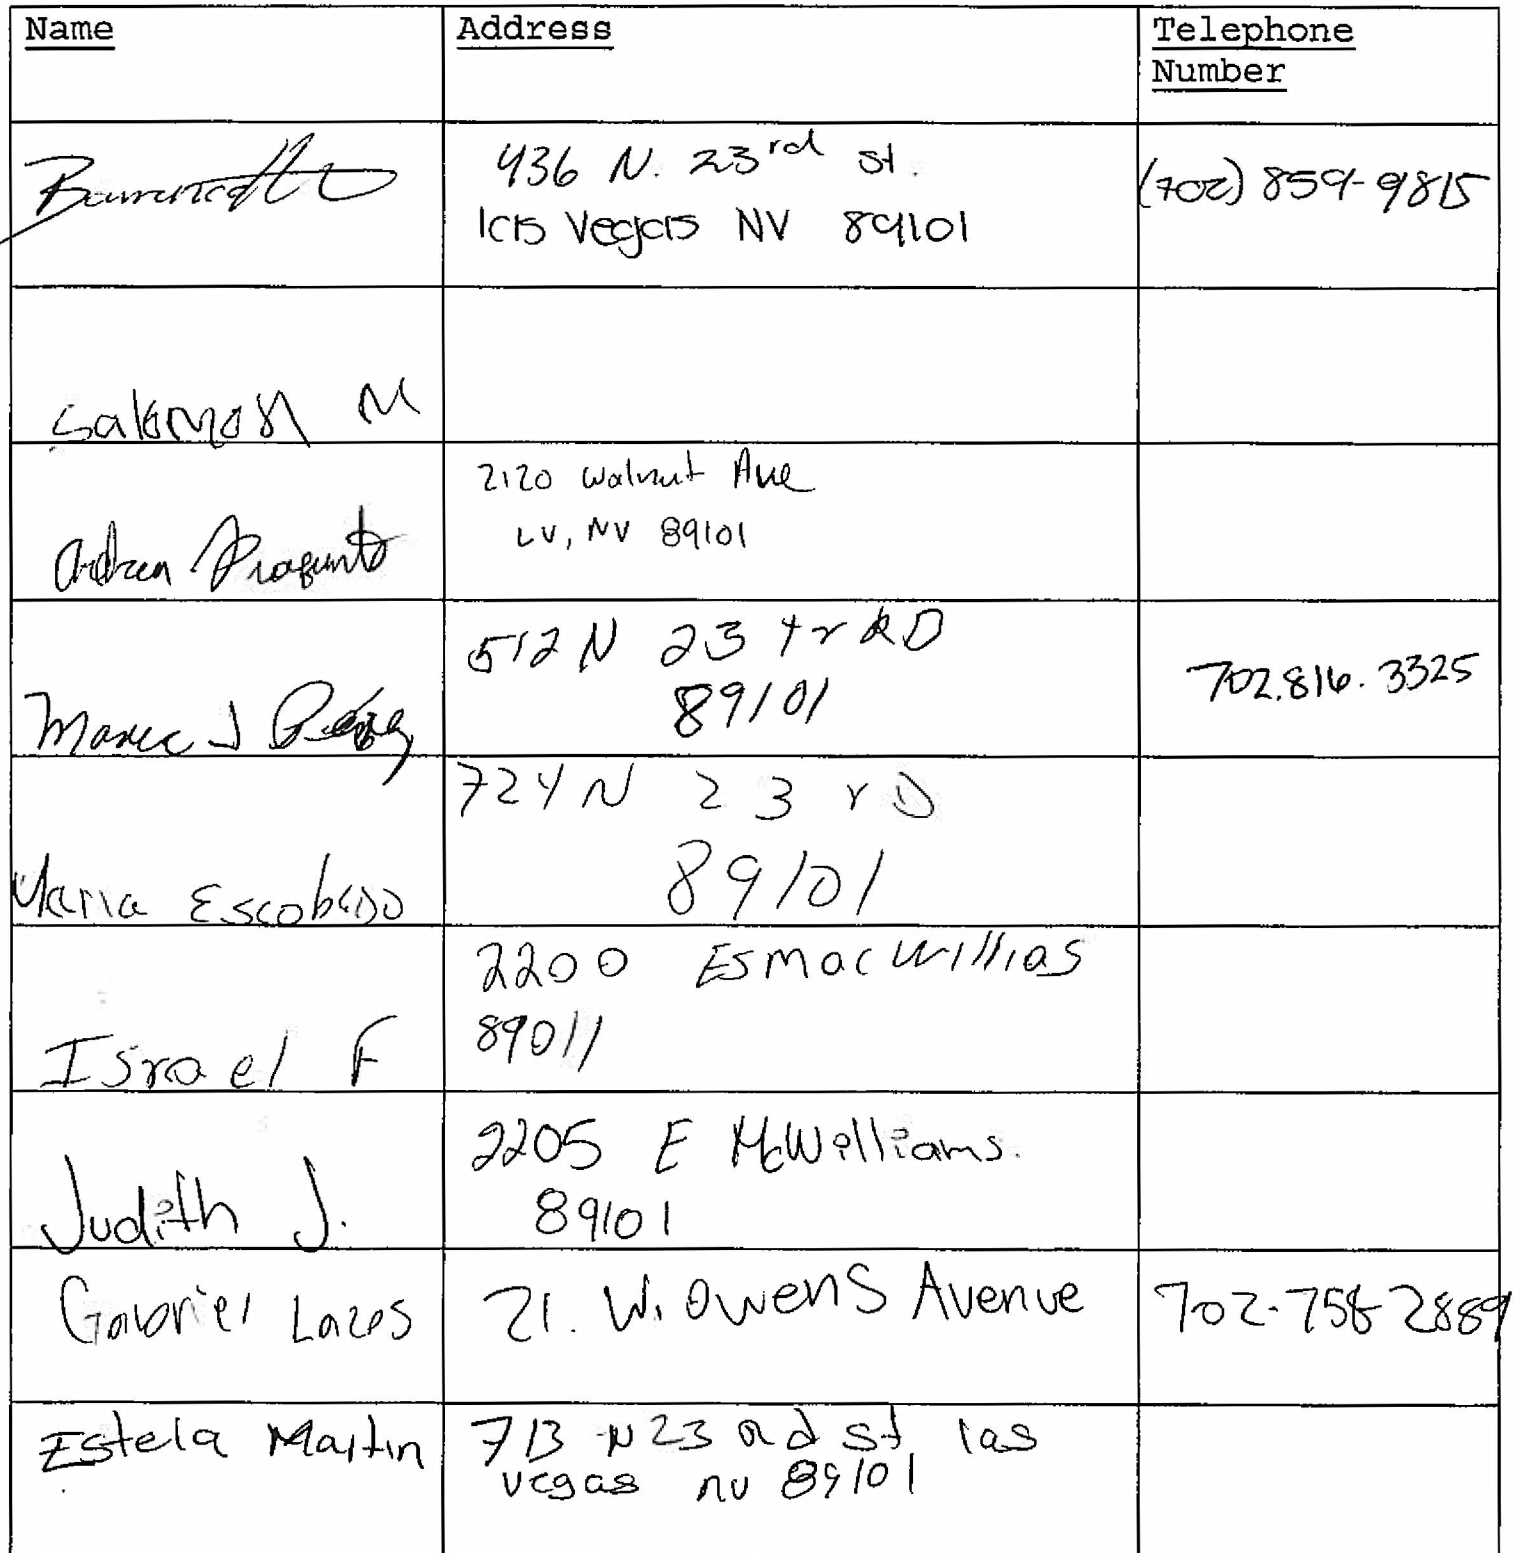 Name Address Telephone
Number
436 N. 23rd st.
las Vegas NV 89101
(702) 859-9815
Salomon M
2120 Walnut Ave
LV, NV 89101
Andrea
512 N 23 trRD
89101
702.816.3325
Maria J Perez
724 N 23 rD
89101
Maria Escobedo
2200 ESmacwillias
89011
Israel F
2205 E McWilliams.
89101
Judith J.
Gabriel Lazos 21. W. Owens Avenue 702-758-2889
Estela Martin 713 N 23 rd st las
vegas nv 89101